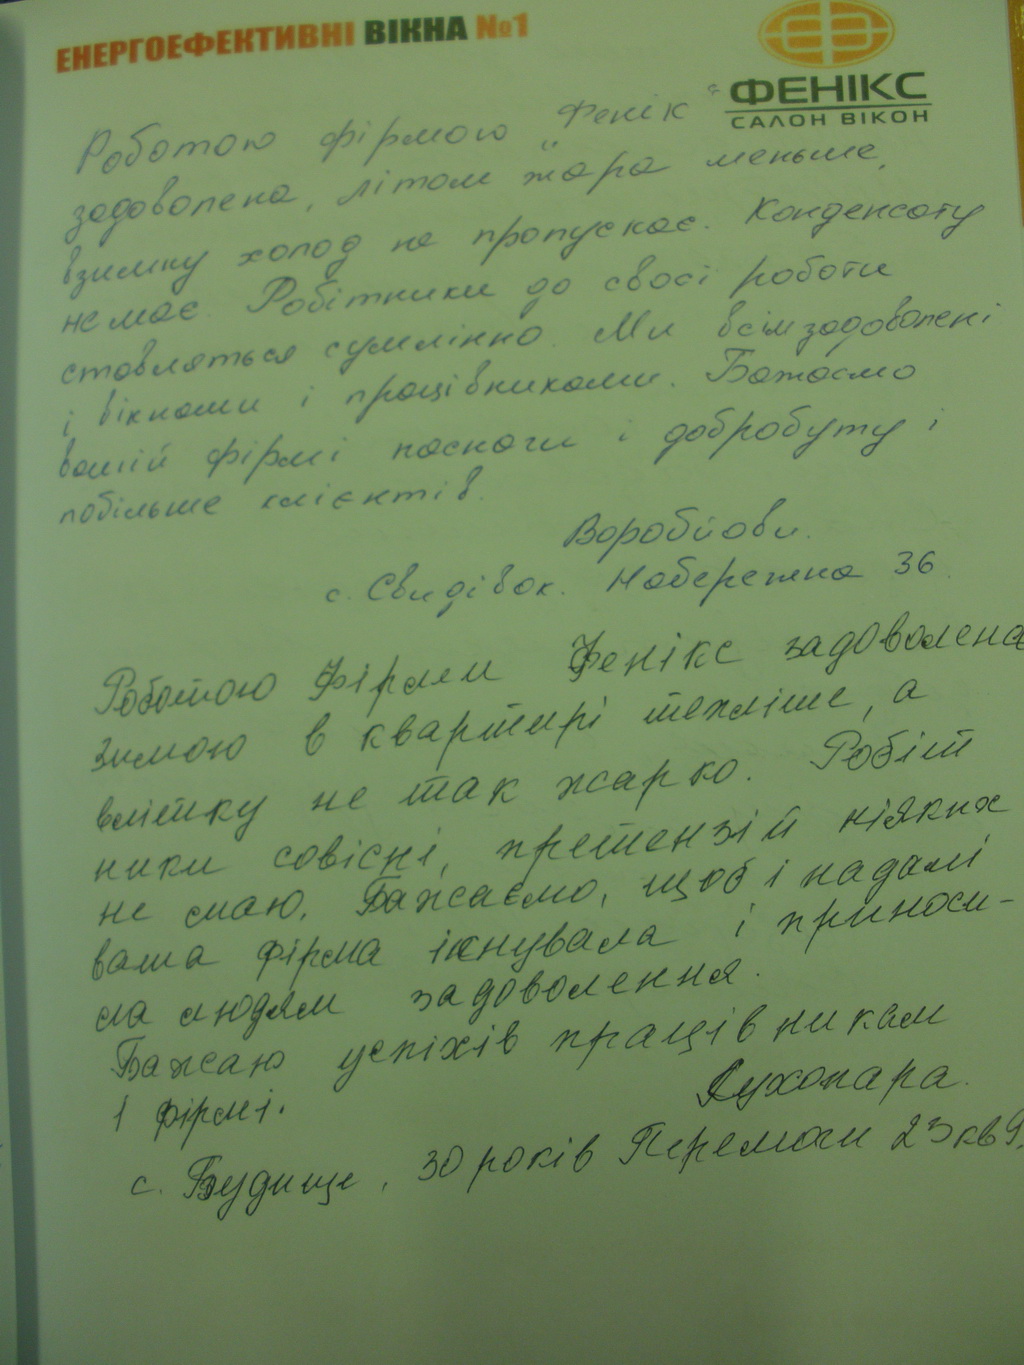 ЕНЕРГОЕФЕКТИВНІ ВІКНА №1
ФЕНІКС
САЛОН ВІКОН
Роботою фірмою "Фенік"
задоволена, літом жара меньше,
взимку холод не пропускає. Конденсату
немає. Робітники до своєї роботи
ставляться сумлінно. Ми всім задоволені
і вікнами і працівниками. Бажаємо
вашій фірмі наснаги і добробуту і
побільше клієнтів.
Воробйови.
с. Свидівок. Набережна 36.
Роботою Фірми Фенікс задоволена
Зимою в квартирі тепліше, а
влітку не так жарко. Робіт
ники совісні, претензій ніяких
не маю. Бажаємо, щоб і надалі
ваша фірма існувала і приноси-
ла людям задоволення.
Бажаю успіхів працівникам
і фірмі.
Сухопара.
с. Будище, 30 років Перемоги 23 кв